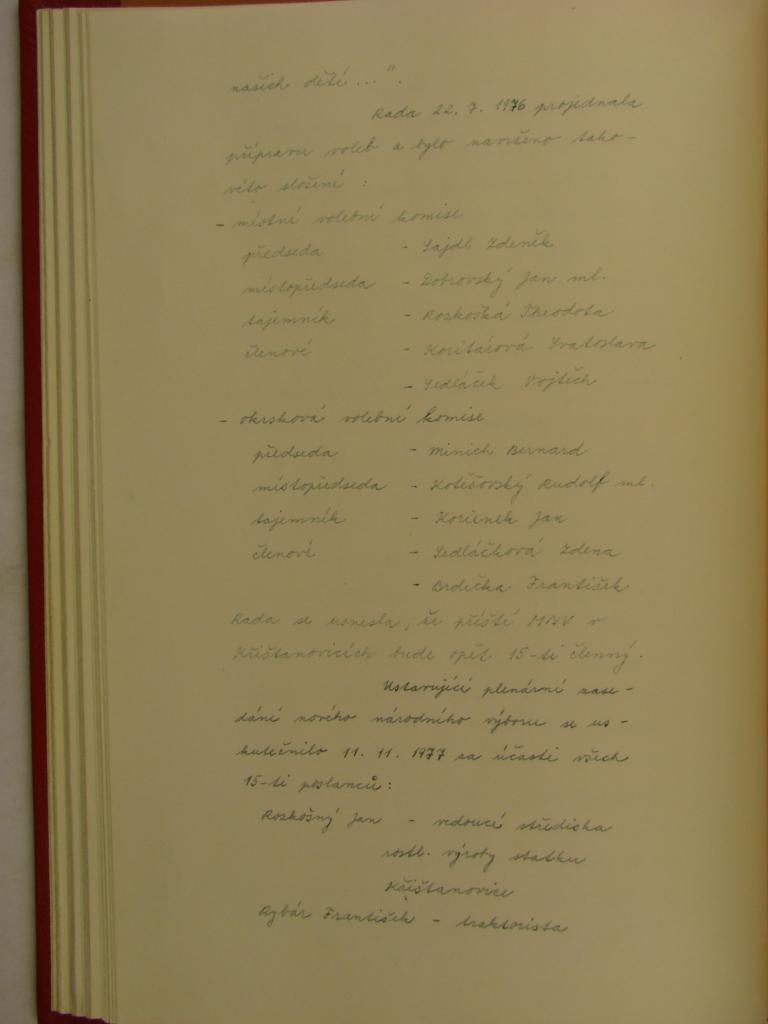 našich dětí ...".
Rada 22. 7. 1976 projednala
přípravu voleb a bylo navrženo tako-
véto složení :
- místní volební komise
předseda - Sajdl Zdeněk
místopředseda - Dobrovský Jan ml.
tajemník - Rozkošná Theodota
členové - Svatoslava
- Sedláček Vojtěch
- okrsková volební komise
předseda - Minich Bernard
místopředseda - Kotěšovský Rudolf ml.
tajemník - Korienek Jan
členové - Sedláčková Zdena
- Brdečka František
Rada se usnesla, že příští MNV v
Křištanovicích bude opět 15-ti členný.
Ustavující plenární zase-
dání nového národního výboru se us-
kutečnilo 11. 11. 1977 za účasti všech
15-ti poslanců :
Rozkošný Jan - vedoucí střediska
rostl. výroby statku
Křištanovice
Rybár František - traktorista